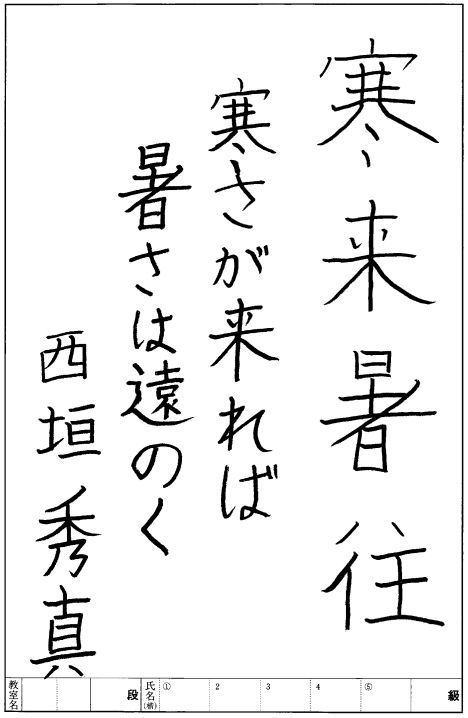 寒来暑往
寒さが来れば
暑さは遠のく
西垣秀真
教室名 段 氏名(楷) ① 2 3 4 ⑤ 級